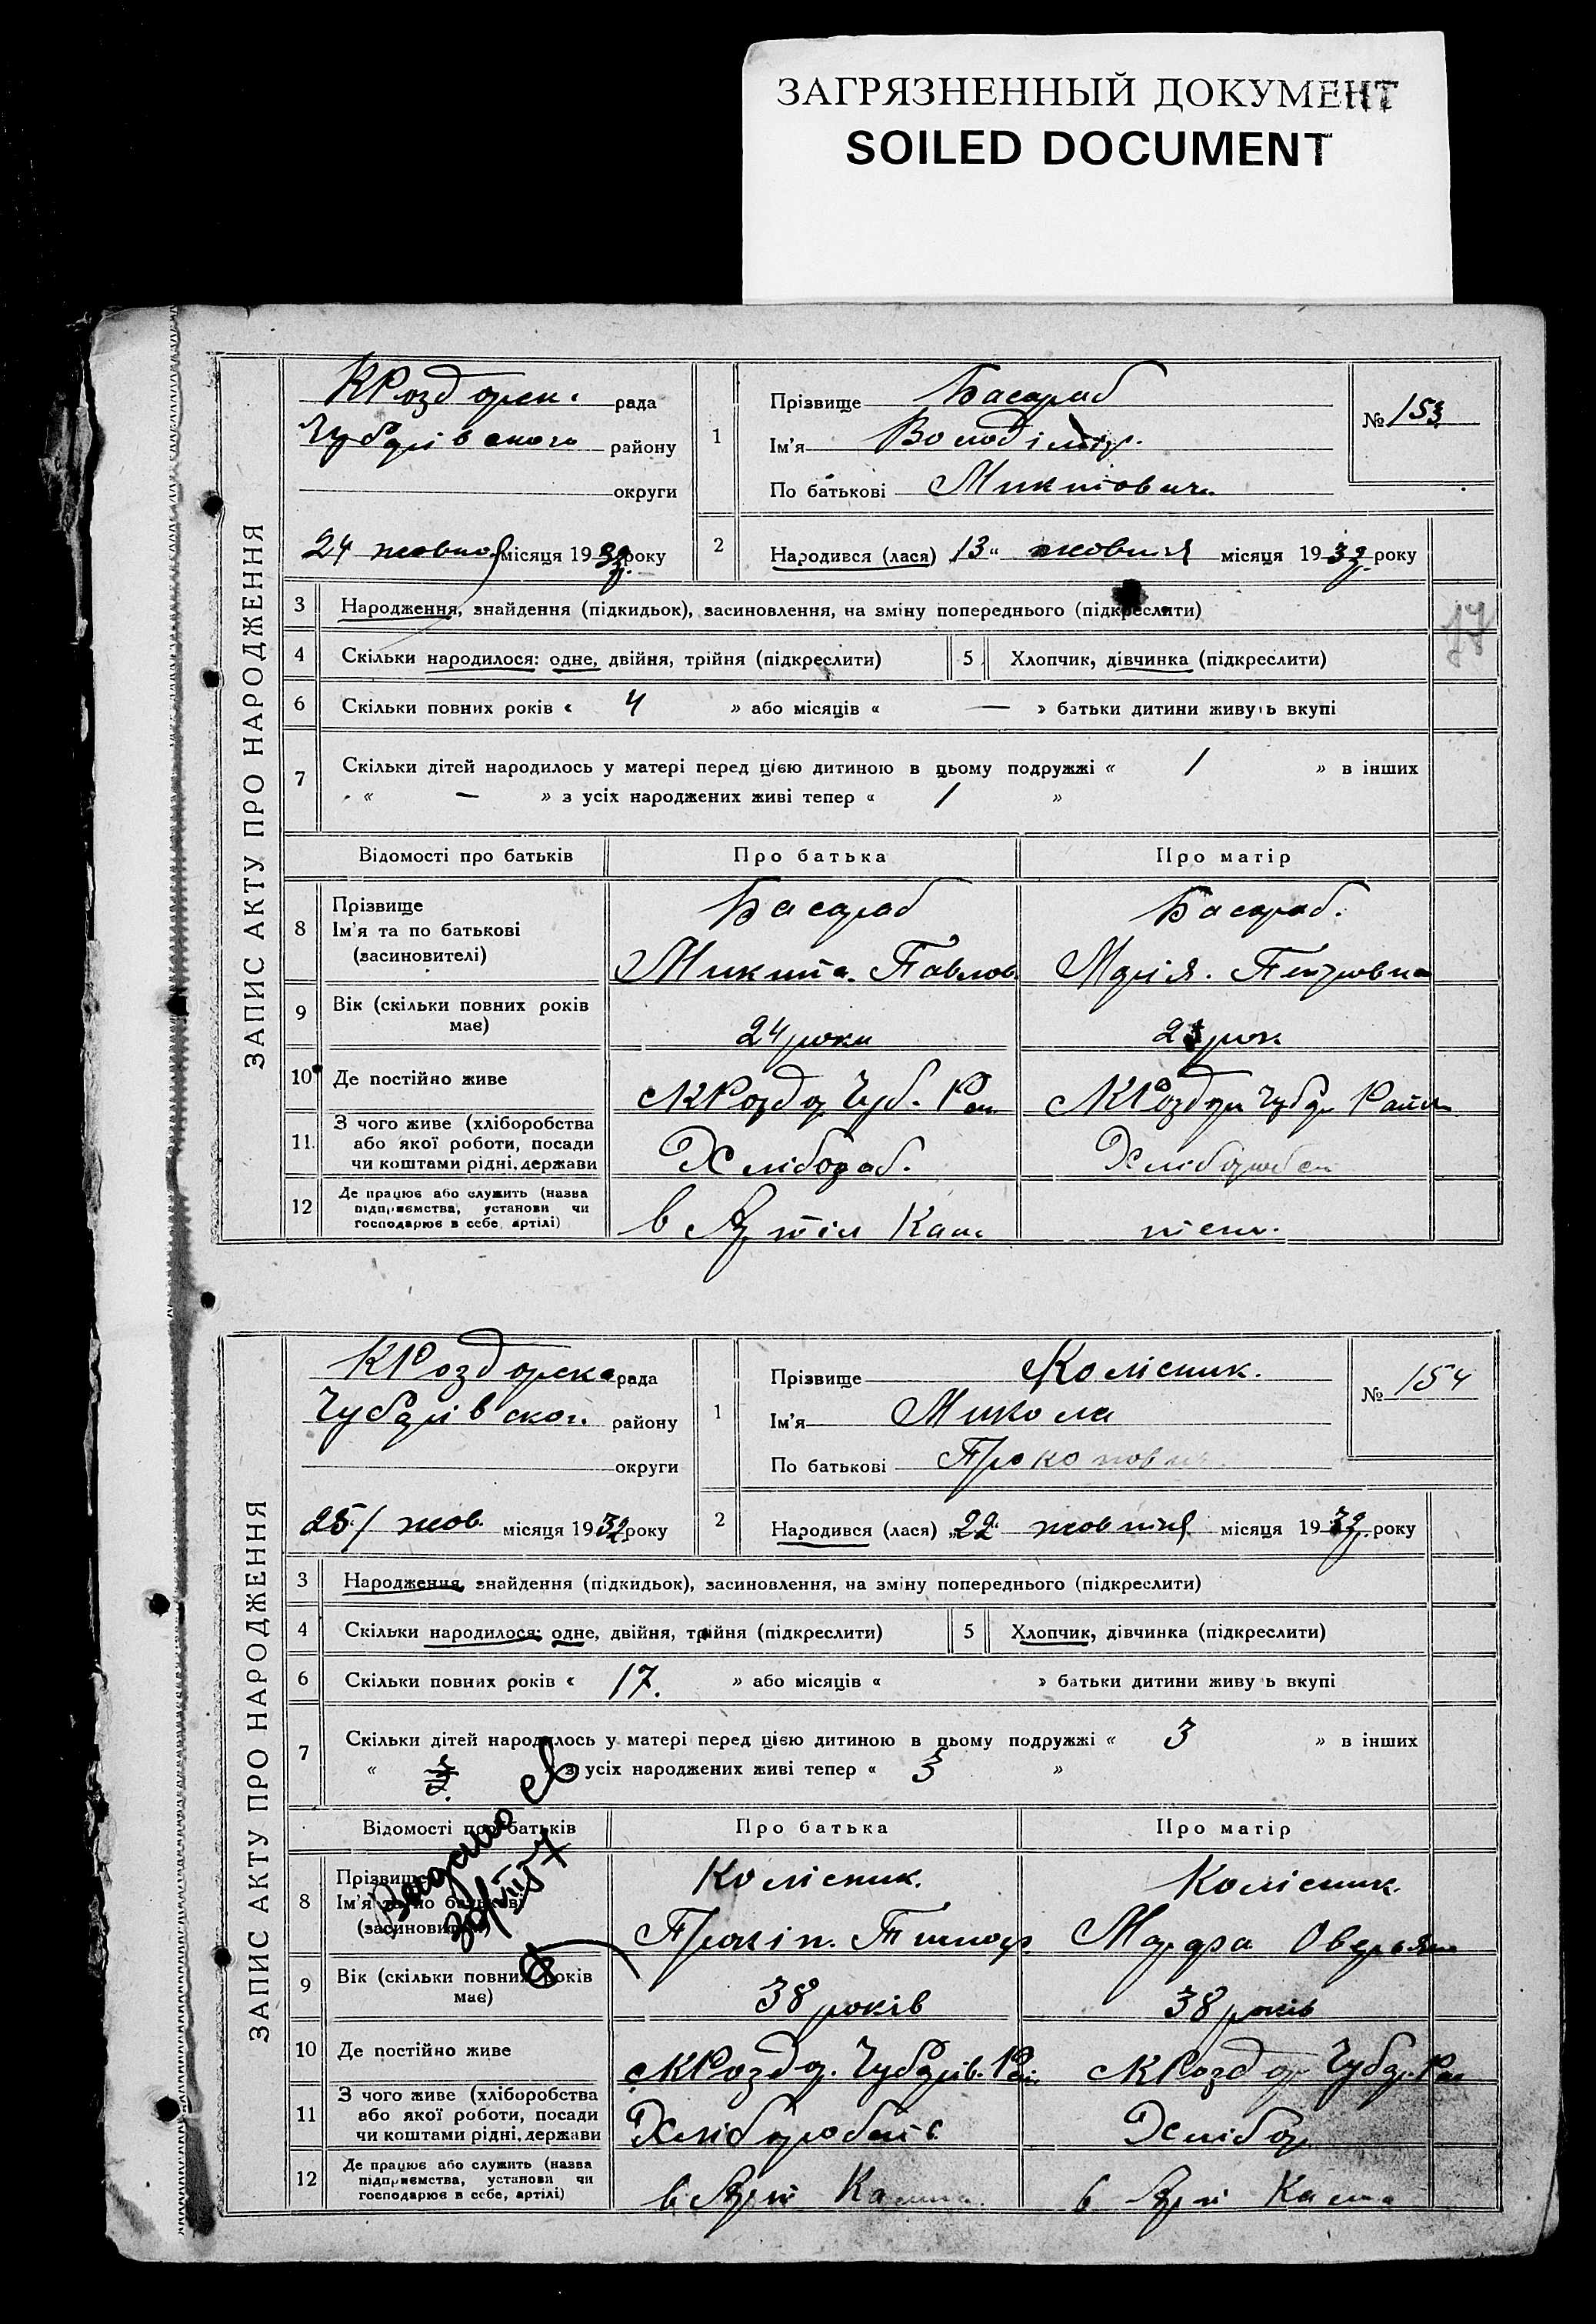 ЗАГРЯЗНЕННЫЙ ДОКУМЕНТ
SOILED DOCUMENT
ЗАПИС АКТУ ПРО НАРОДЖЕННЯ
КРоздорск. рада
Чубарівського району
округи
24 жовтня місяця 1932 року
1 Прізвище Басараб
Ім'я Володімир.
По батькові Микитович
№ 153
2 Народився (лася) 13 жовтня місяця 1932 року
3 Народження, знайдення (підкидьок), засиновлення, на зміну попереднього (підкреслити)
4 Скільки народилося: одне, двійня, трійня (підкреслити) 5 Хлопчик, дівчинка (підкреслити)
6 Скільки повних років « 4 » або місяців « — » батьки дитини живуть вкупі
7 Скільки дітей народилось у матері перед цією дитиною в цьому подружжі « 1 » в інших
« — » з усіх народжених живі тепер « 1 »
Відомості про батьків Про батька Про матір
8 Прізвище
Ім'я та по батькові
(засновителі)
Басараб Басараб.
Микита. Павлов. Марія. Петровна
9 Вік (скільки повних років має) 24 роки
10 Де постійно живе КРоздор Чуб. Рай КРоздор Чубар Район
11. З чого живе (хліборобства
або якої роботи, посади
чи коштами рідні, держави
Хлібороб.
12 Де працює або служить (назва
підприємства, установи чи
господарює в себе, артілі)
в Артіл
ЗАПИС АКТУ ПРО НАРОДЖЕННЯ
КРоздорска рада
Чубарівског. району
округи
25/ жов. місяця 1932 року
1 Прізвище Колісник.
Ім'я Микола
По батькові Прокопович
№ 154
2 Народився (лася) „22" жовтня місяця 1932 року
3 Народження, знайдення (підкидьок), засиновлення, на зміну попереднього (підкреслити)
4 Скільки народилося: одне, двійня, трійня (підкреслити) 5 Хлопчик, дівчинка (підкреслити)
6 Скільки повних років « 17. » або місяців « » батьки дитини живуть вкупі
7 Скільки дітей народилось у матері перед цією дитиною в цьому подружжі « 3 » в інших
« » з усіх народжених живі тепер « 3 »
Відомості про батьків Про батька Про матір
8 Прізвище
Ім'я та по батькові
(засиновителі)
Колісник. Колісник.
Прокіп. Тимоф Марфа Оверьян
9 Вік (скільки повних років має) 38 років 38 років
10 Де постійно живе КРоздор. Чубарів. Рай. КРоздор Чубар. Рай
11 З чого живе (хліборобства
або якої роботи, посади
чи коштами рідні, держави
Хлібор
12 Де працює або служить (назва
підприємства, установи чи
господарює в себе, артілі)
в Арт в Арт